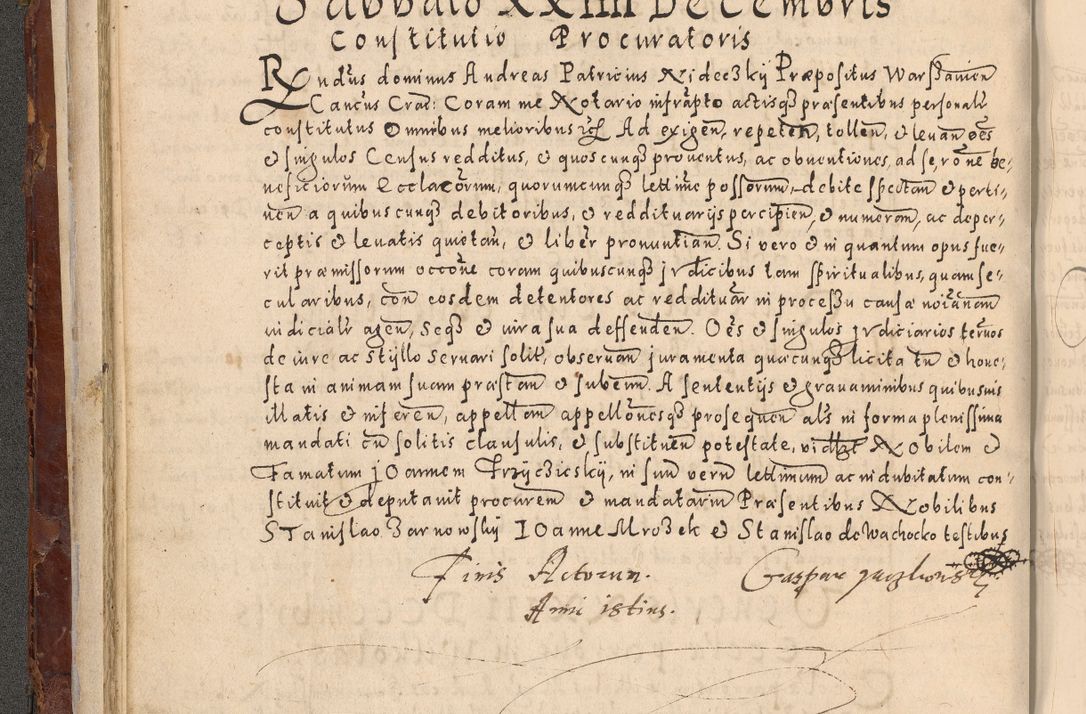 Sabbato XXIIII Decembris
Constitutio Procuratoris
Rndus dominus Andreas Patricius Nideczkij Præpositus Warschauien
Cancus Crac: Coram me Notario infrapto actisq præsentibus personalr
constitutus Omnibus melioribus etc Ad exigen, repeten, tollen, et leuan oes
et singulos Census redditus, et quoscunq prouentus, ac obuentiones, ad se, rone be-
neficiorum Ecclarorum, quorumcunq lettime possorum, debite spectan et perti-
nen a quibuscunq debitoribus, et reddituarijs percipien, et numeran, ac deper-
ceptis et leuatis quietan, et liber pronuntian. Si vero et in quantum opus fue-
rit præmissorum occone coram quibuscunq judicibus tam spiritualibus, quam se-
cularibus, con eosdem detentores ac reddituar in processu causa noiandam
iudicialr agen, Seq et iura sua deffenden. Oes et singulos judiciarios termos
de iure ac stijllo seruari solit, obseruan juramenta quæcunq licita tn et hone-
sta in animam suam præstan et subeun. A sententijs et grauaminibus quibusuis
illatis et inferen, appellan appellonesq prosequen als in forma plenissima
mandati cu solitis clausulis, et substituen potestate, vidlzt Nobilem et
Famatum Joannem Trzyczieskij, in suu veru lettimum ac indubitatum con-
stituit et deputauit procurem et mandatariu Præsentibus Nobilibus
Stanislao Zarnowskij Joanne Mrozek et Stanislao de Wachocko testibus
Finis Actorum. Gaspar
Anni istius.